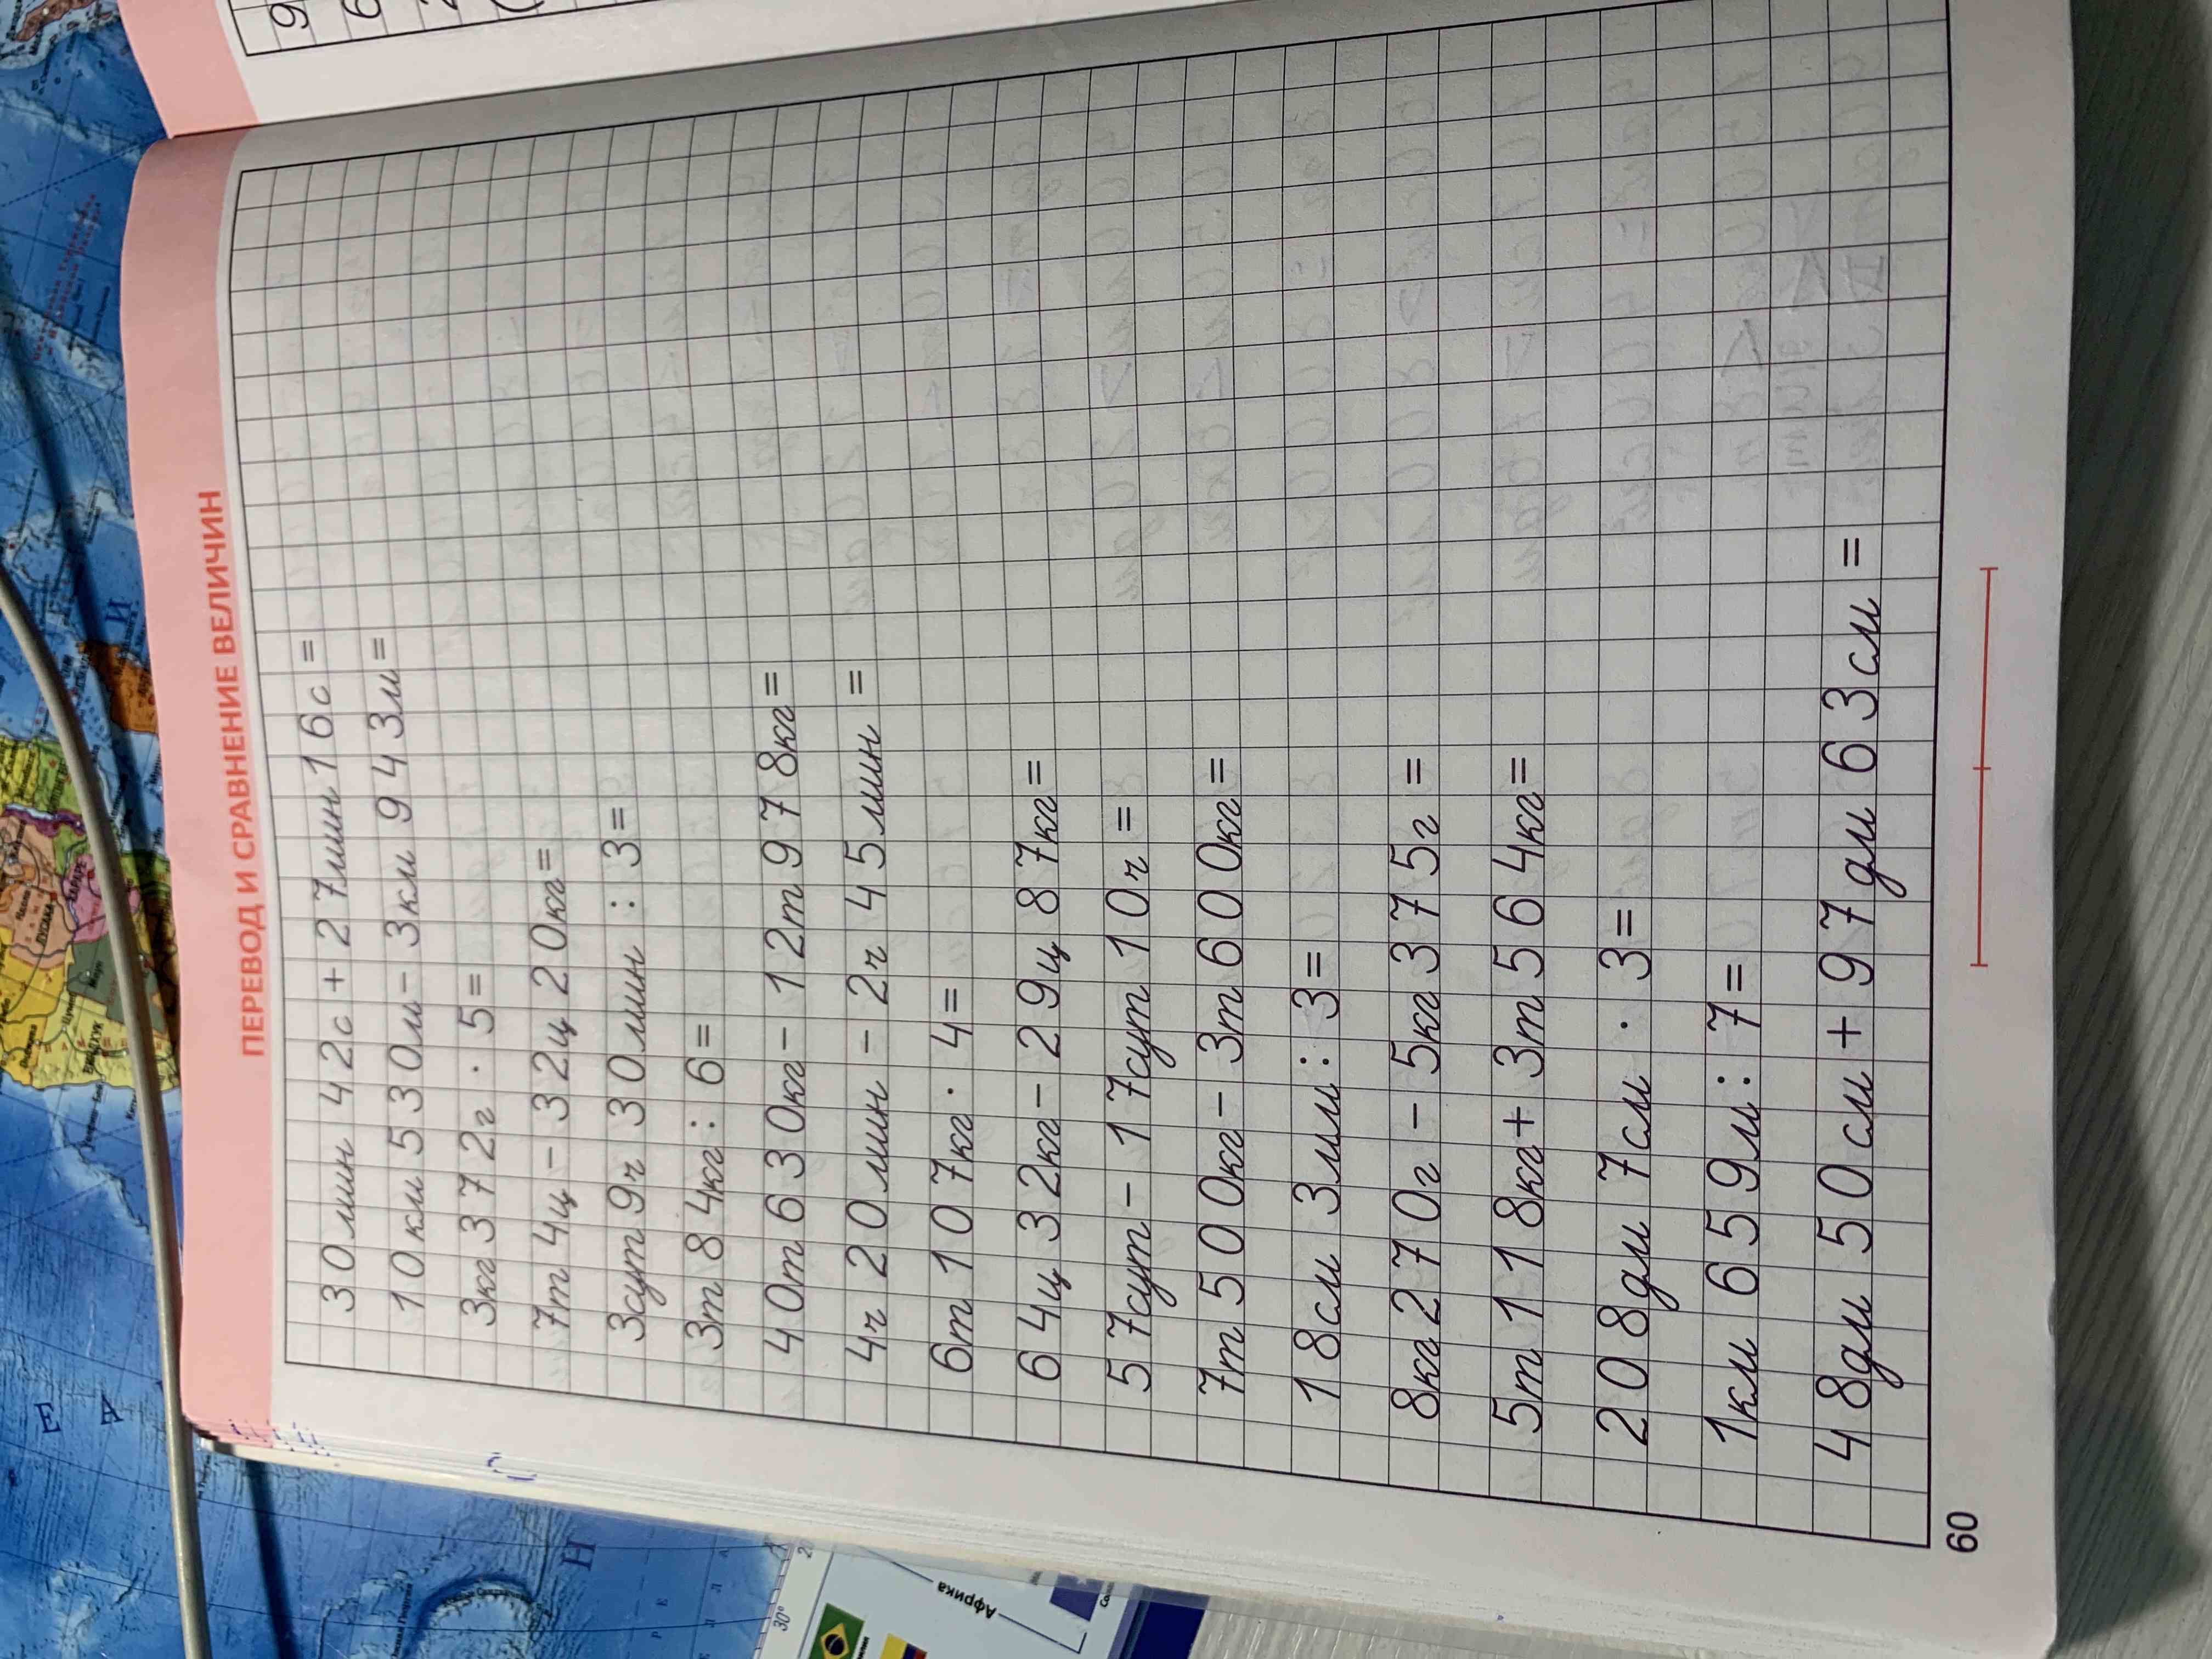 ПЕРЕВОД И СРАВНЕНИЕ ВЕЛИЧИН
30мин 42с+27мин16с=
10км530м-3км943м=
3кг372г·5=
7т4ц-32ц20кг=
3сут9ч30мин:3=
3т84кг:6=
40т630кг-12т978кг=
4ч20мин-2ч45мин=
6т107кг·4=
64ц32кг-29ц87кг=
57сут-17сут10ч=
7т500кг-3т600кг=
18см3мм:3=
8кг270г-5кг375г=
5т118кг+3т564кг=
208дм7см·3=
1км659м:7=
48дм50см+97дм63см=
60
Африка
30°
Е А
Н
И